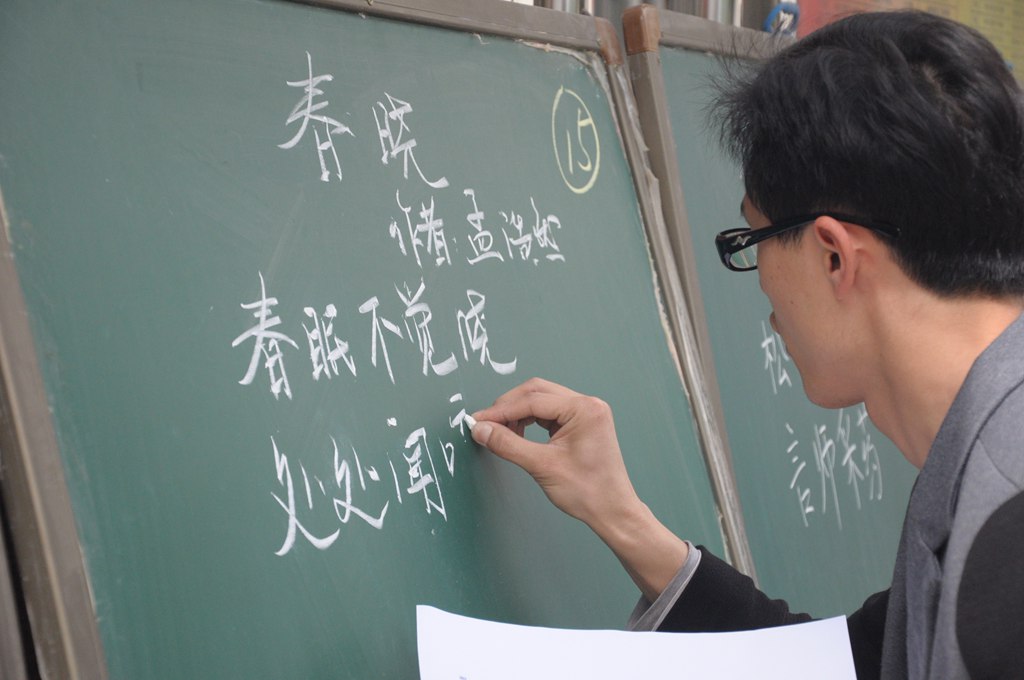 春晓
15
作者:孟浩然
春眠不觉晓
处处闻
松
言师采药